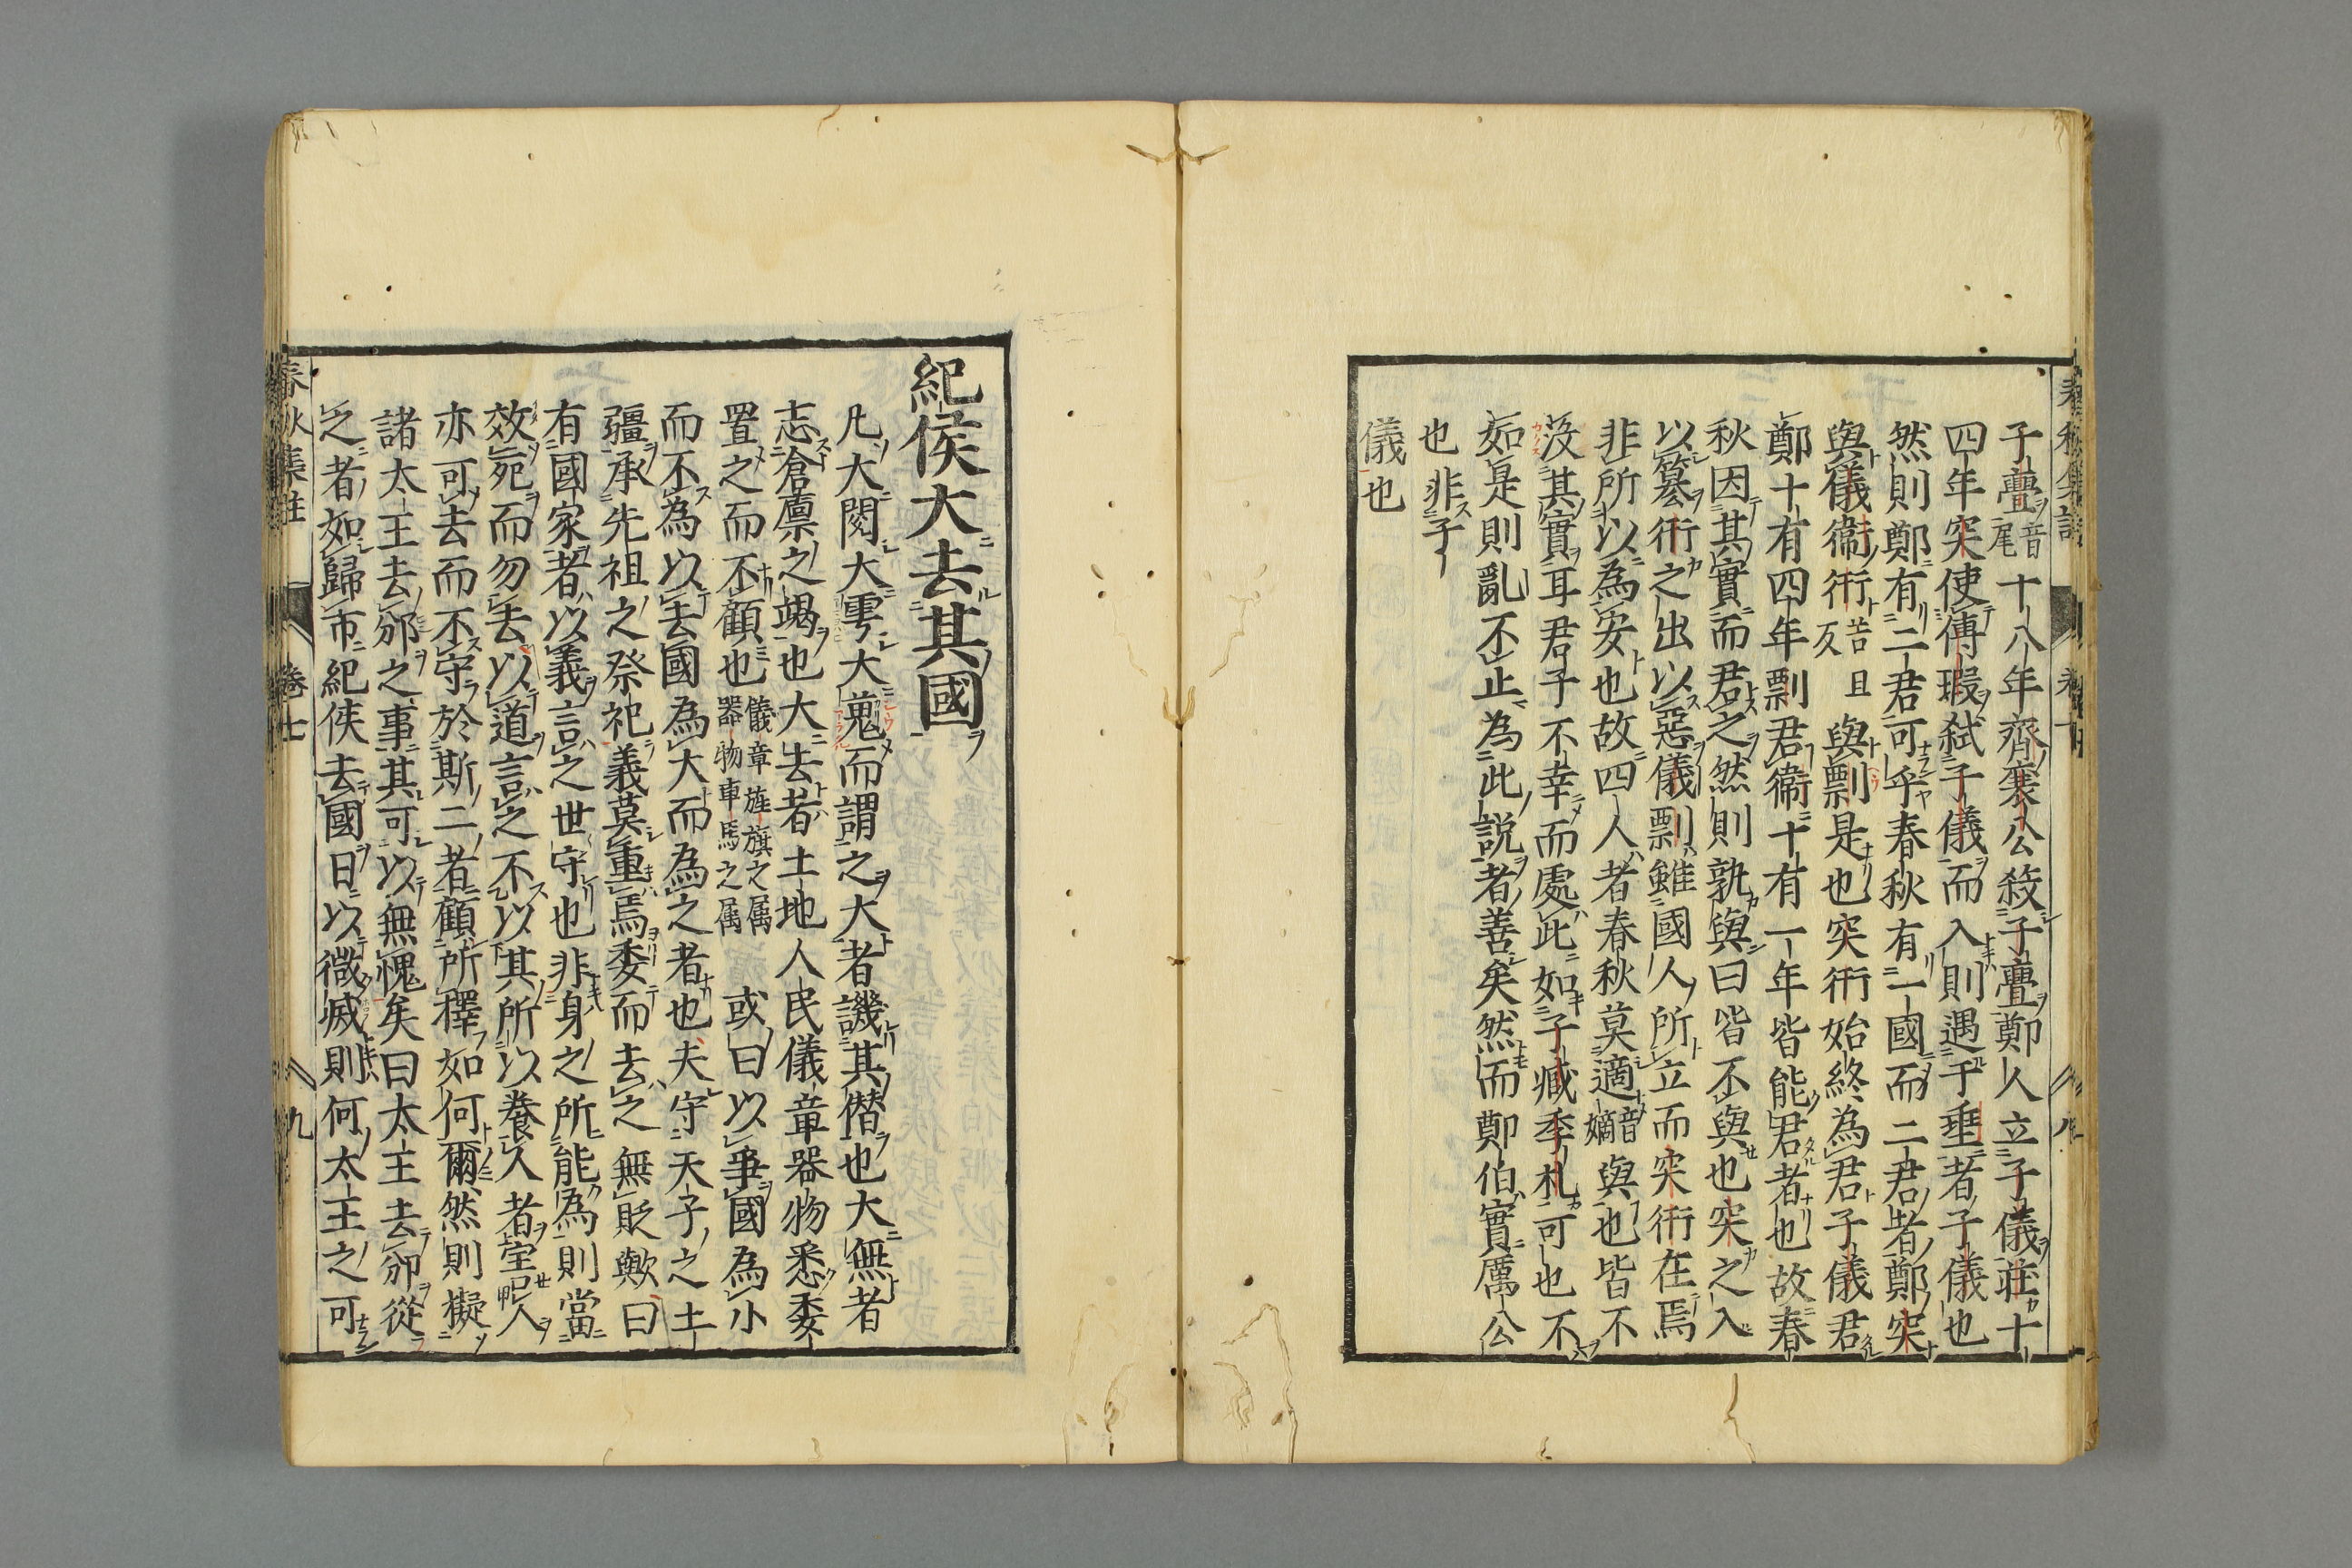 子亹音尾十八年齊襄公殺子亹鄭人立子儀莊十
四年突使傅瑕弑子儀而入則遇于垂者子儀也
然則鄭有二君可乎春秋有一國而二君者鄭突
與儀衞衎苦旦反與剽是也突衎始終為君子儀君
鄭十有四年剽君衞十有一年皆能君者也故春
秋因其實而君之然則孰與曰皆不與也突之入
以簒衎之出以惡儀剽雖國人所立而突衎在焉
非所以為安也故四人者春秋莫適音嫡與也皆不
沒其實耳君子不幸而處此如子臧季札可也不
如是則亂不止為此説者善矣然而鄭伯實厲公
也非子
儀也
紀侯大去其國
凡大閱大雩大蒐而謂之大者譏其僣也大無者
志倉廩之竭也大去者土地人民儀章器物悉委
置之而不顧也儀章旌旗之属器物車馬之属或曰以爭國為小
而不為以去國為大而為之者也夫守天子之土
疆承先祖之祭祀義莫重焉委而去之無貶歟曰
有國家者以義言之世守也非身之所能為則當
效死而勿去以道言之不以其所以養人者害人
亦可去而不守於斯二者顧所釋如何爾然則擬
諸太王去邠之事其可以無愧矣曰太王去邠從
之者如歸市紀侯去國日以微滅則何太王之可
春秋集註
卷七
九